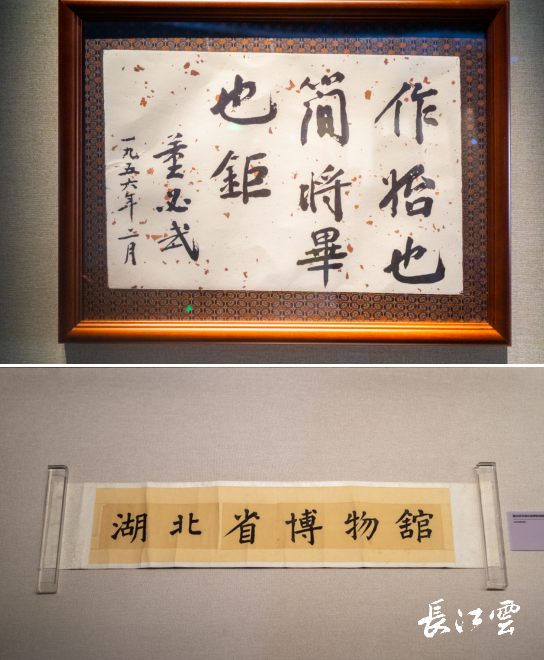 作始也
簡将畢
也鉅
董必武
一九五六年二月
湖北省博物舘
長江雲